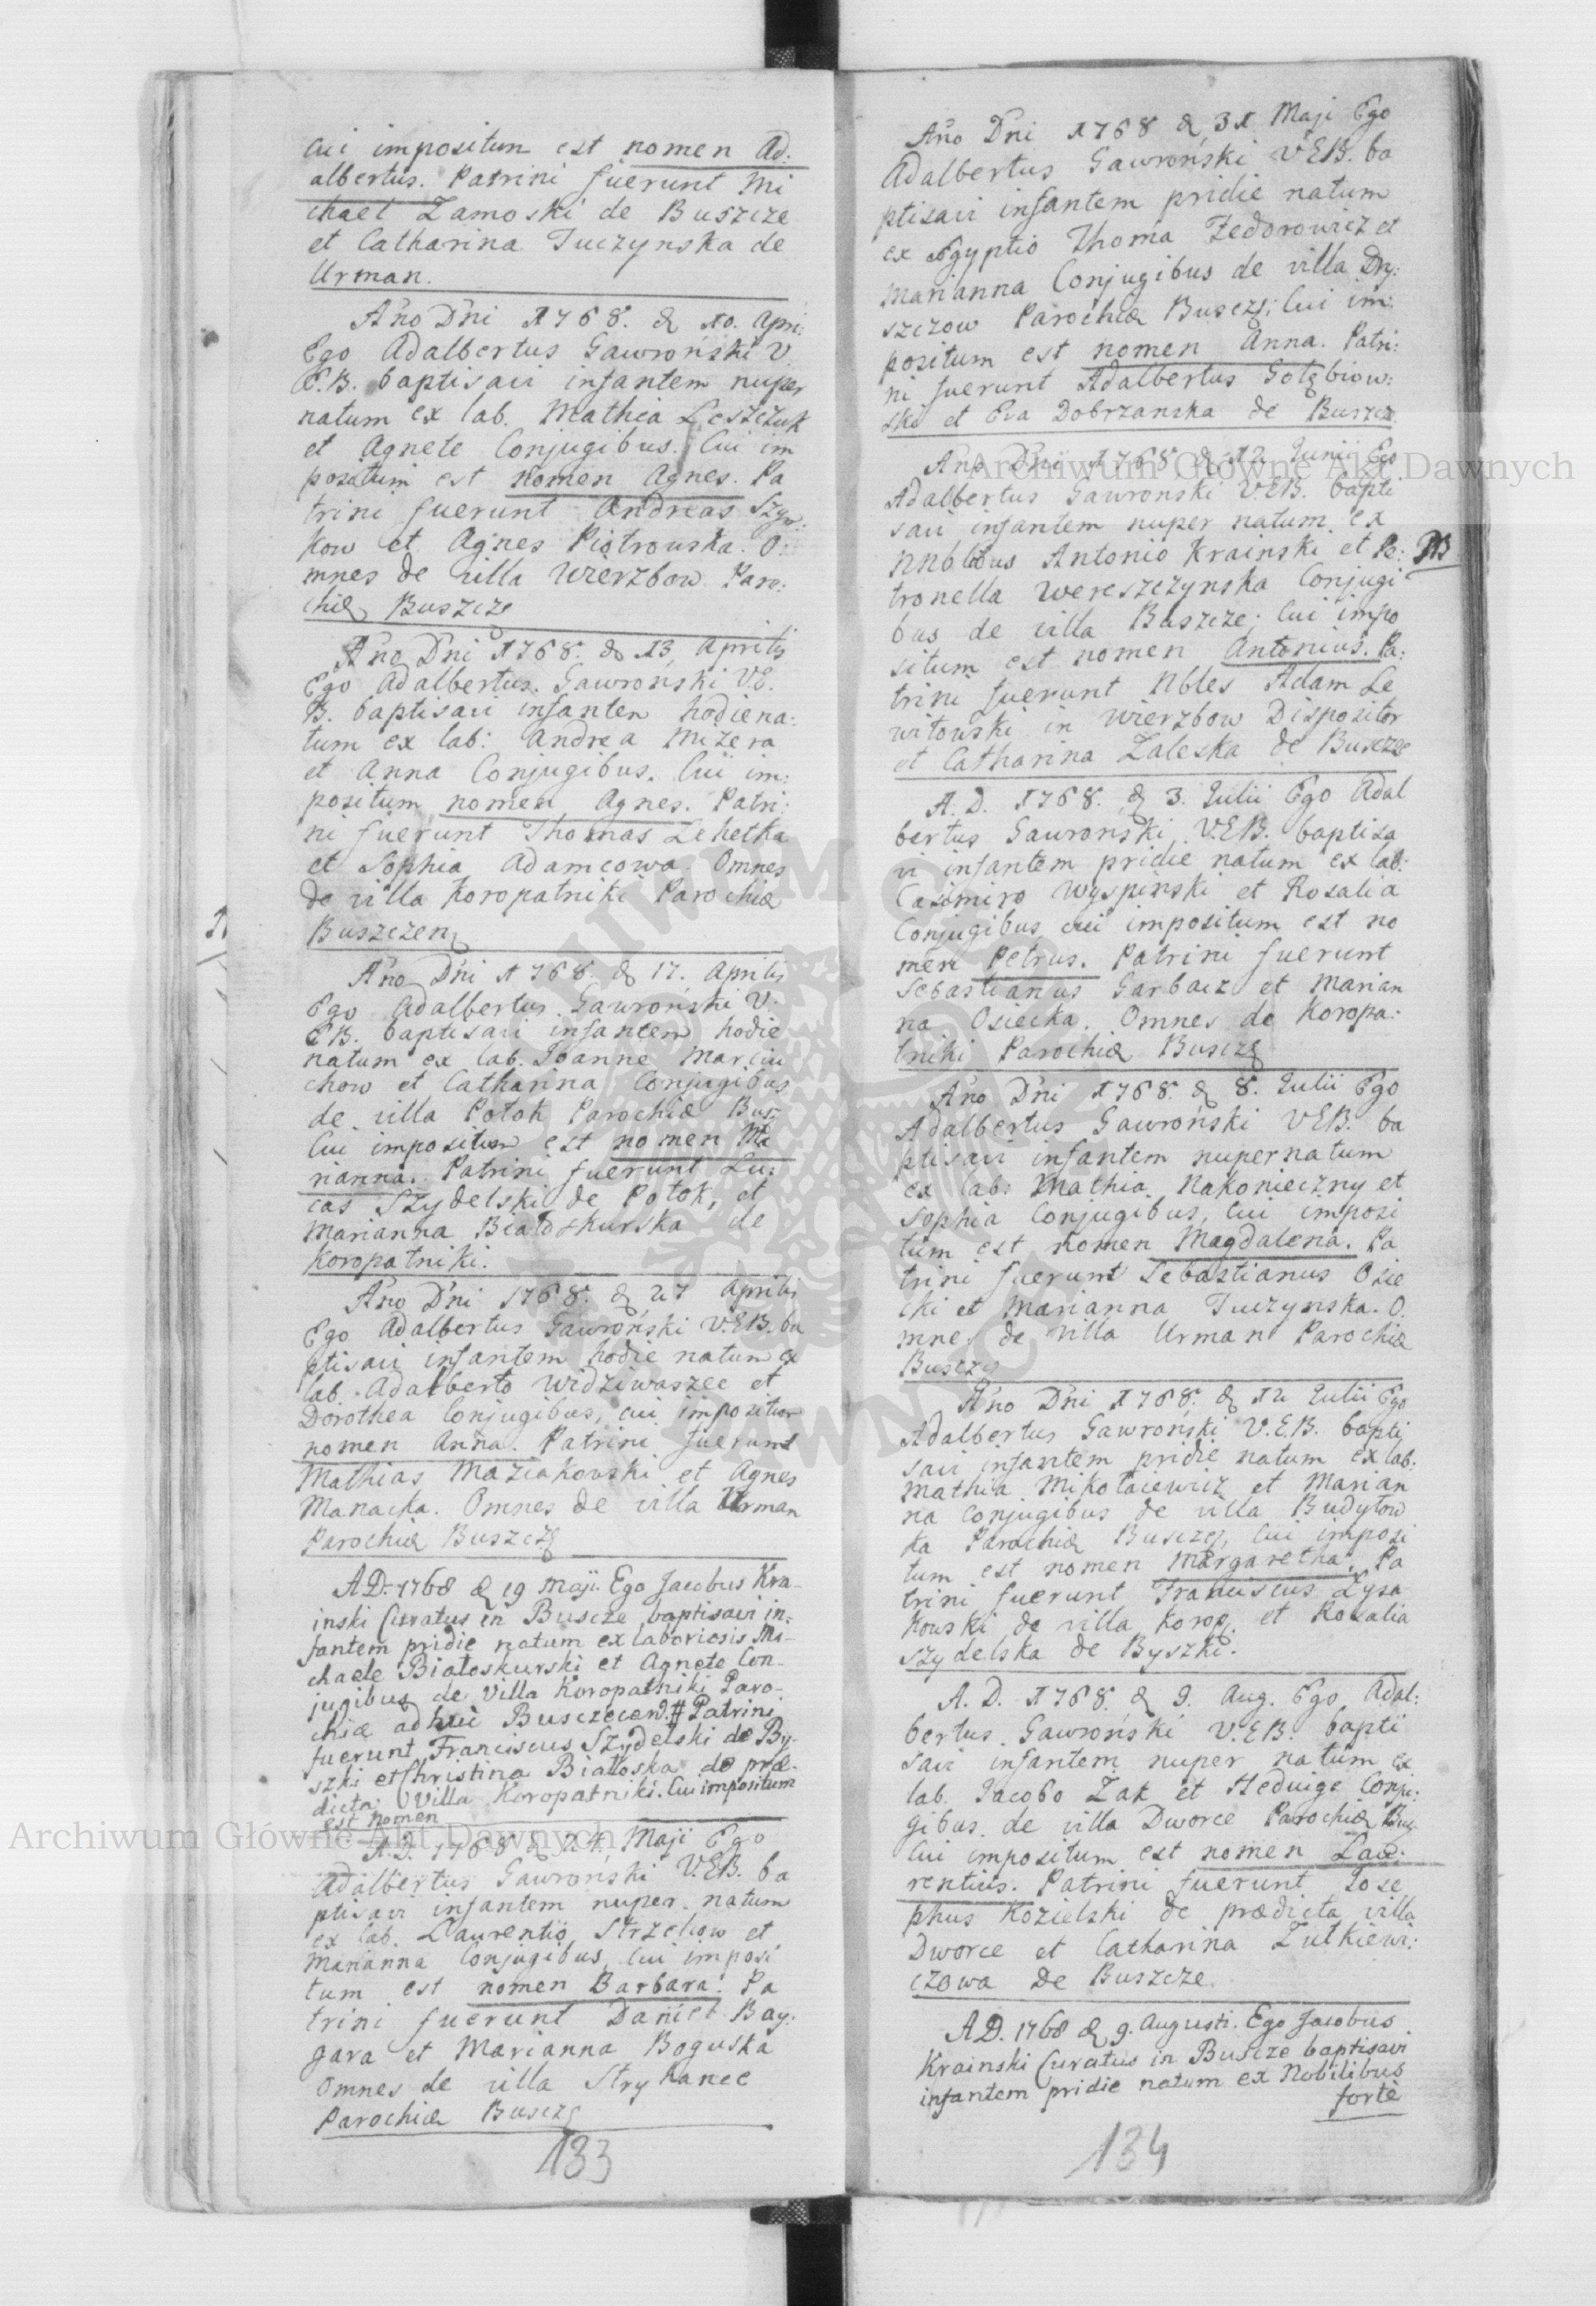 cui impositum est nomen Ad:
albertus. Patrini fuerunt Mi
chael Zamoski de Buszcze
et Catharina Tuczynska de
Urman.
Año Dñi 1768. d 10. Apri:
Ego Adalbertus Gawroński V.
E.B. baptisavi infantem nuper
natum ex lab. Mathia Leszczuk
et Agnete Conjugibus. Cui im
positum est nomen Agnes. Pa
trini fuerunt Andreas
kow et Agnes Piotrowska. O:
mnes de villa Wierzbow Paro:
chiæ Buszcze
Año Dñi 1768. d 13 Aprilis
Ego Adalbertus Gawroński V.E.
B. baptisavi infantem hodie na:
tum ex lab: Andrea Mizera
et Anna Conjugibus. Cui im:
positum nomen Agnes. Patri:
ni fuerunt Thomas Lehetka
et Sophia Adamcowa. Omnes
de villa Koropatniki Parochiæ
Buszczen
Año Dñi 1768. d 17. Aprilis
Ego Adalbertus Gawroński V.
E.B. baptisavi infantem hodie
natum ex lab. Joanne Marciu
chow et Catharina Conjugibus
de villa Potok Parochiæ Bus:
Cui impositum est nomen Ma
rianna. Patrini fuerunt Lu:
cas Szydelski de Potok, et
Marianna Białoskurska de
Koropatniki.
Año Dñi 1768. d 27 Aprilis
Ego Adalbertus Gawroński V.E.B. ba
ptisavi infantem hodie natum ex
lab. Adalberto Widziwaszec et
Dorothea Conjugibus, cui impositum
nomen Anna. Patrini fuerunt
Mathias Maziakowski et Agnes
Manacka. Omnes de villa Urman
Parochiæ Buszczę
A.D. 1768 d 19 Maji. Ego Jacobus Kra-
inski Curatus in Buscze baptisavi in-
fantem pridie natum ex laboriosis Mi-
chaele Białoskurski et Agnete Con-
jugibus de Villa Koropatniki Paro-
chiæ adhuc Busczecen. # Patrini
fuerunt Franciscus Szydelski de By-
szki et Christina Białoska de præ-
dicta Villa Koropatniki. Cui impositum
est nomen
A.D. 1768 d 24. Maji Ego
Adalbertus Gawroński V.E.B. ba
ptisavi infantem nuper natum
ex lab. Laurentio Strzelcow et
Marianna Conjugibus, Cui imposi
tum est nomen Barbara. Pa
trini fuerunt Daniel Bay:
gara et Marianna Boguska
Omnes de villa Stryhance
Parochiæ Busczę
133
Año Dñi 1768 d 31 Maji Ego
Adalbertus Gawroński V.E.B. ba
ptisavi infantem pridie natum
ex Ægyptio Thoma Fedorowicz et
Marianna Conjugibus de villa Dry:
szczow Parochiæ Busczę, Cui im:
positum est nomen Anna. Patri:
ni fuerunt Adalbertus Gołębiow:
ski et Eva Dobrzanska de Buszcze
Año Dñi 1768 d 12 Junii Ego
Adalbertus Gawroński V.E.B. bapti
savi infantem nuper natum ex
NNblibus Antonio Krainski et Pe: NB
tronella Wereszczynska Conjugi
bus de villa Buszcze, Cui impo
situm est nomen Antonius. Pa:
trini fuerunt Nbles Adam Le
witowski in Wierzbow Dispositor
et Catharina Zaleska de Buszcze
A. D. 1768. d 3. Julii Ego Adal
bertus Gawroński V.E.B. baptisa
vi infantem pridie natum ex lab:
Casimiro Wyspinski et Rosalia
Conjugibus cui impositum est no
men Petrus. Patrini fuerunt
Sebastianus Garbacz et Marian
na Osiecka. Omnes de Koropa:
tniki Parochiæ Busczę
Año Dñi 1768. d 8. Julii Ego
Adalbertus Gawroński V.E.B. ba
ptisavi infantem nuper natum
ex lab: Mathia Nakonieczny et
Sophia Conjugibus, cui imposi
tum est nomen Magdalena. Pa
trini fuerunt Sebastianus Osie
cki et Marianna Tuczynska. O.
mnes de villa Urman Parochiæ
Busczę
Año Dñi 1768. d 12 Julii Ego
Adalbertus Gawroński V.E.B. bapti
savi infantem pridie natum ex lab:
Mathia Mikołaiewicz et Marian
na Conjugibus de villa Budyłow
ka Parochiæ Busczę, Cui imposi
tum est nomen Margaretha. Pa
trini fuerunt Franciscus Lysa
kowski de villa Korop. et Rosalia
Szydelska de Byszki.
A. D. 1768. d 9. Aug. Ego Adal:
bertus Gawroński V.E.B. bapti
savi infantem nuper natum ex
lab. Jacobo Zak et Hedvige Conju:
gibus de villa Dworce Parochiæ Bus
Cui impositum est nomen Lau:
rentius. Patrini fuerunt Jose
phus Kozielski de prædicta villa
Dworce et Catharina Zutkiewi:
czowa de Buszcze.
A.D. 1768 d 9. Augusti. Ego Jacobus
Krainski Curatus in Buscze baptisavi
infantem pridie natum ex Nobilibus
forte
134
Archiwum Główne Akt Dawnych
Archiwum Główne Akt Dawnych